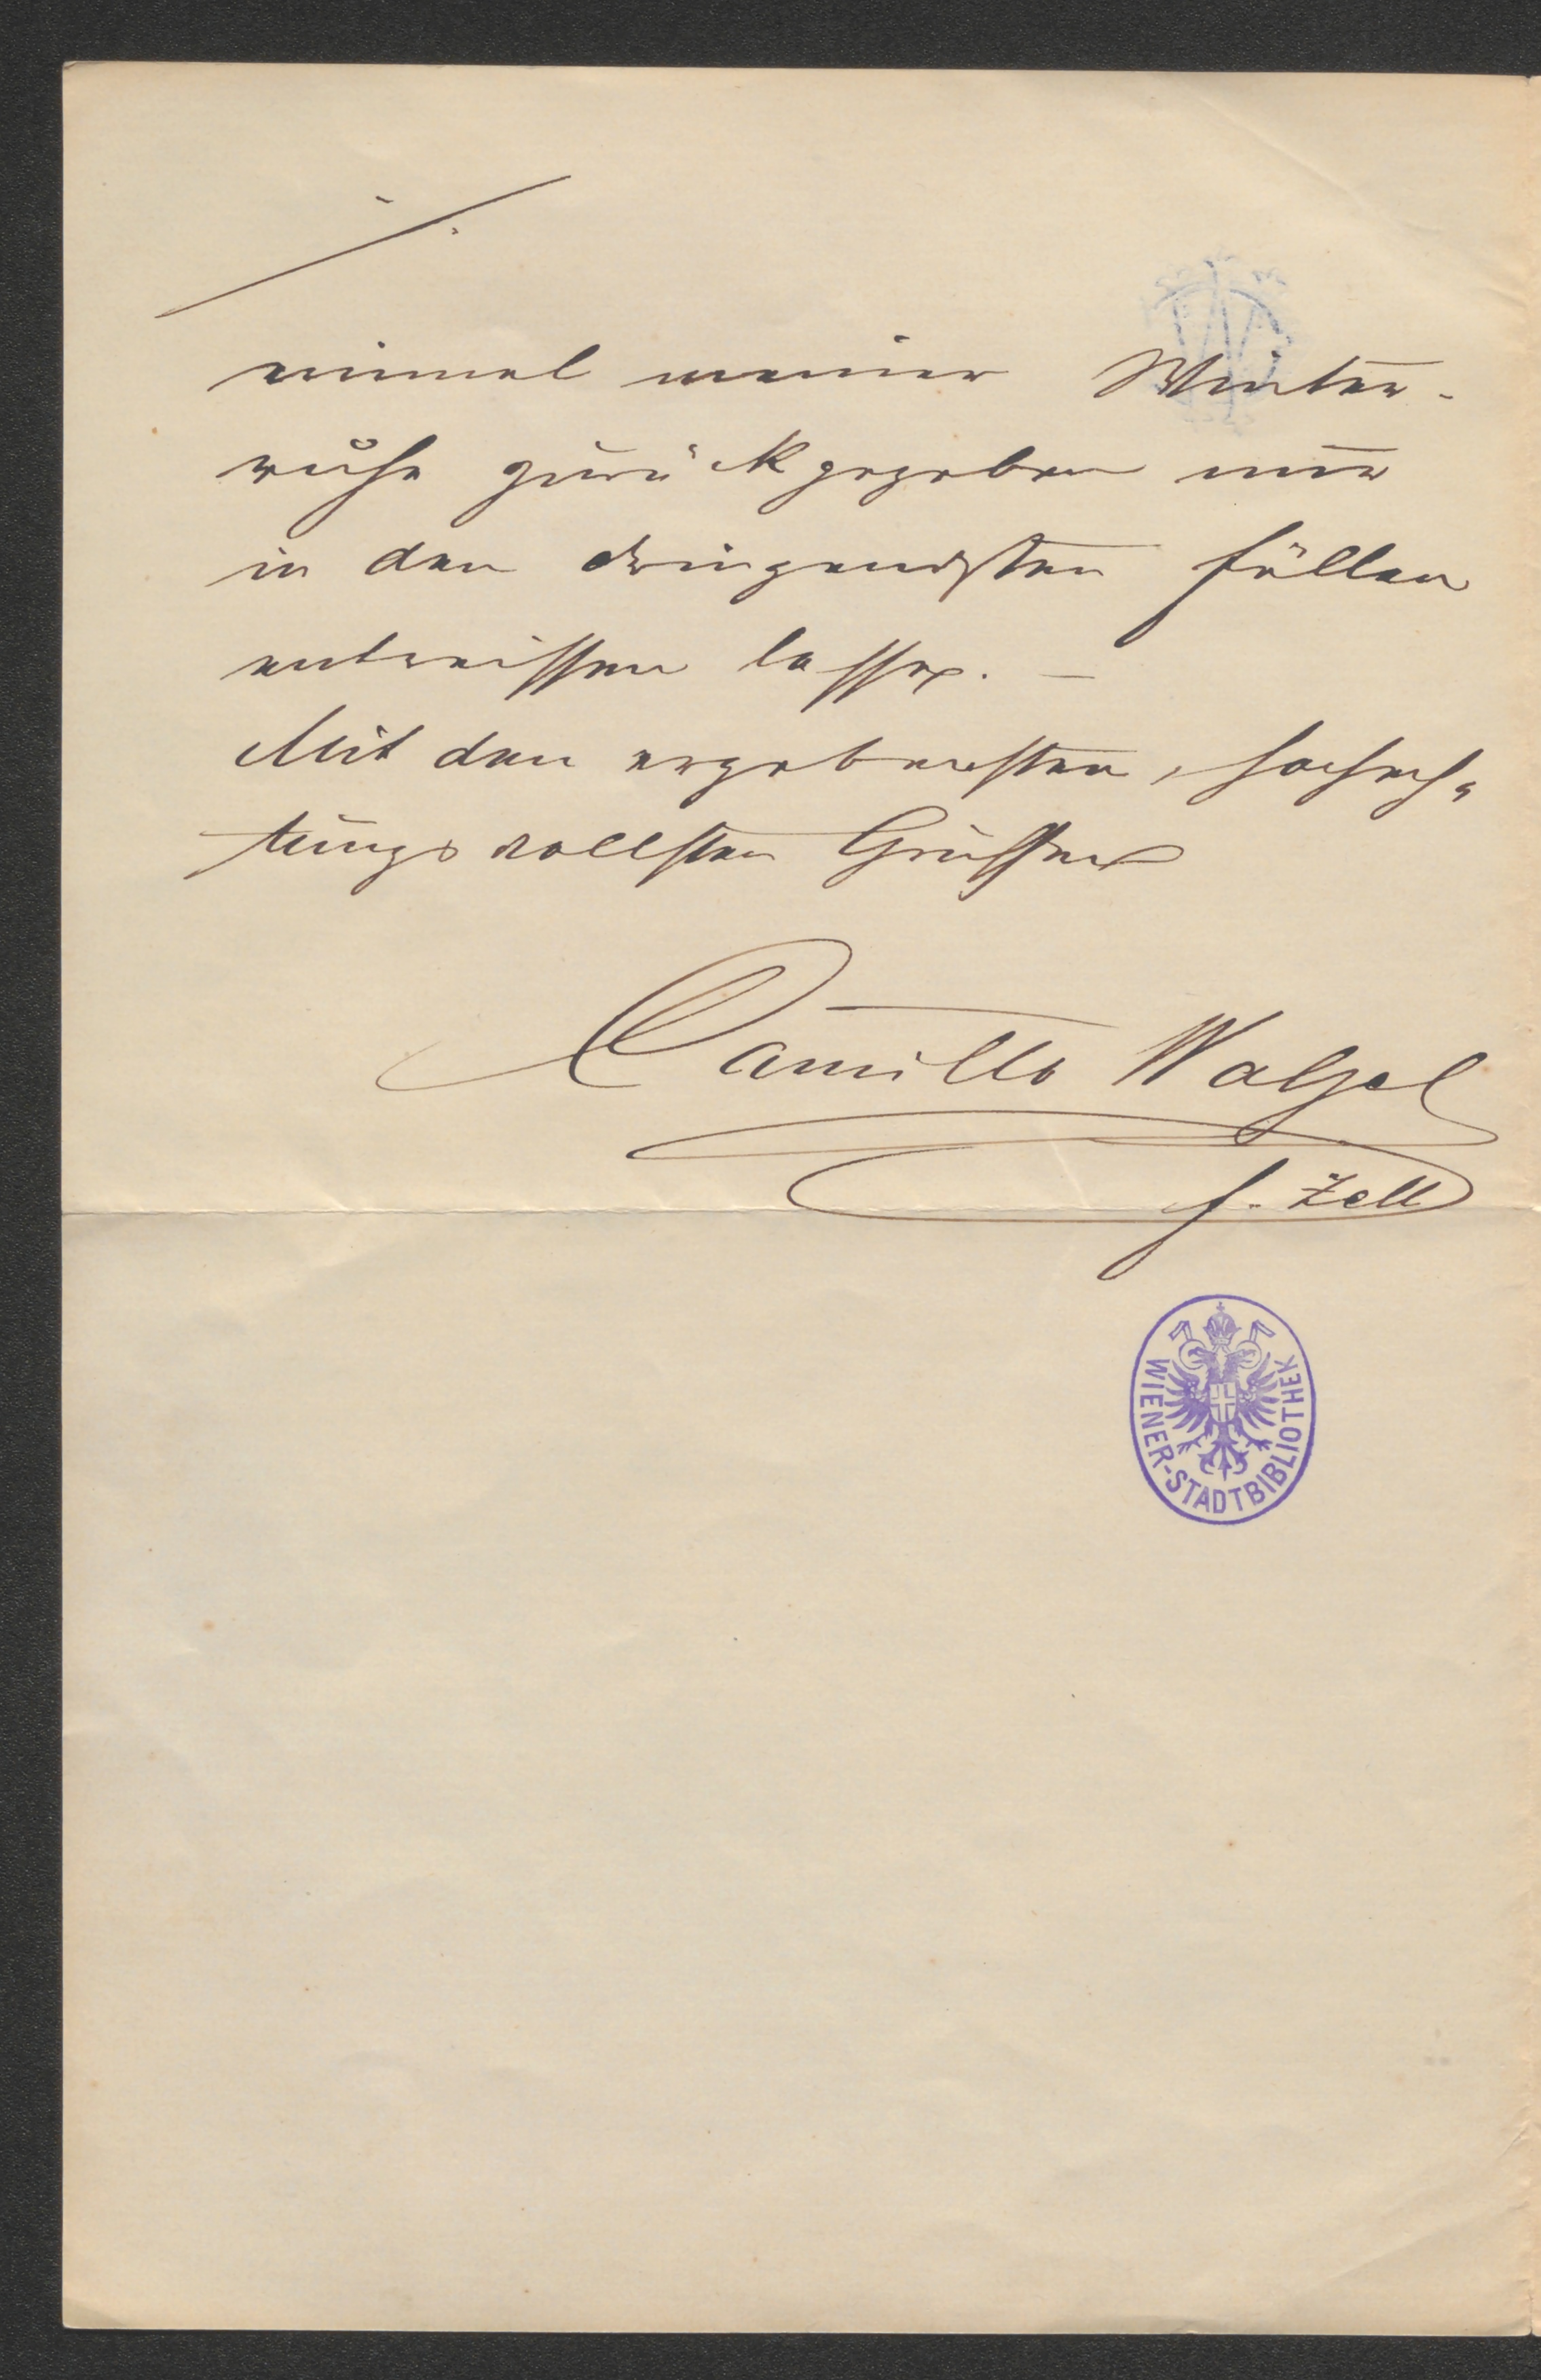 ./.
einmal meiner Winter-
ruhe zurückgegeben nur
in den dringendsten Fällen
entreissen lasse. —
Mit den ergebensten, hochach-
tungsvollsten Grüssen
Camillo Walzel
F. Zell
WIENER-STADTBIBLIOTHEK